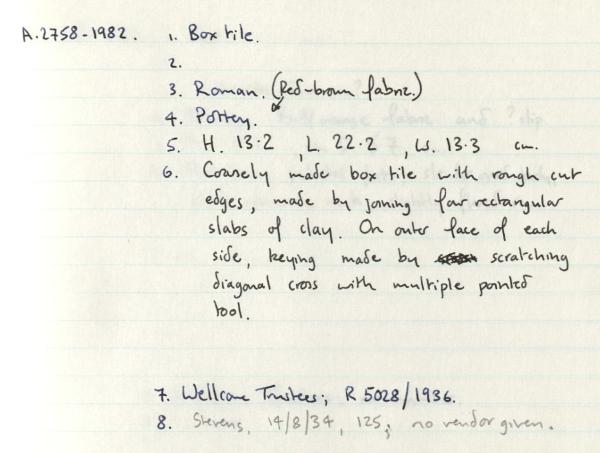 A.2758-1982. 1. Box tile.
2.
3. Roman. (Red-brown fabric.)
4. Pottery.
5. H. 13.2 , L. 22.2 , W. 13.3 cm.
6. Coarsely made box tile with rough cut
edges, made by joining four rectangular
slabs of clay. On outer face of each
side, keying made by scratching
diagonal cross with multiple pointed
tool.
7. Wellcome Trustees; R 5028/1936.
8. Stevens, 14/8/34, 125; no vendor given.